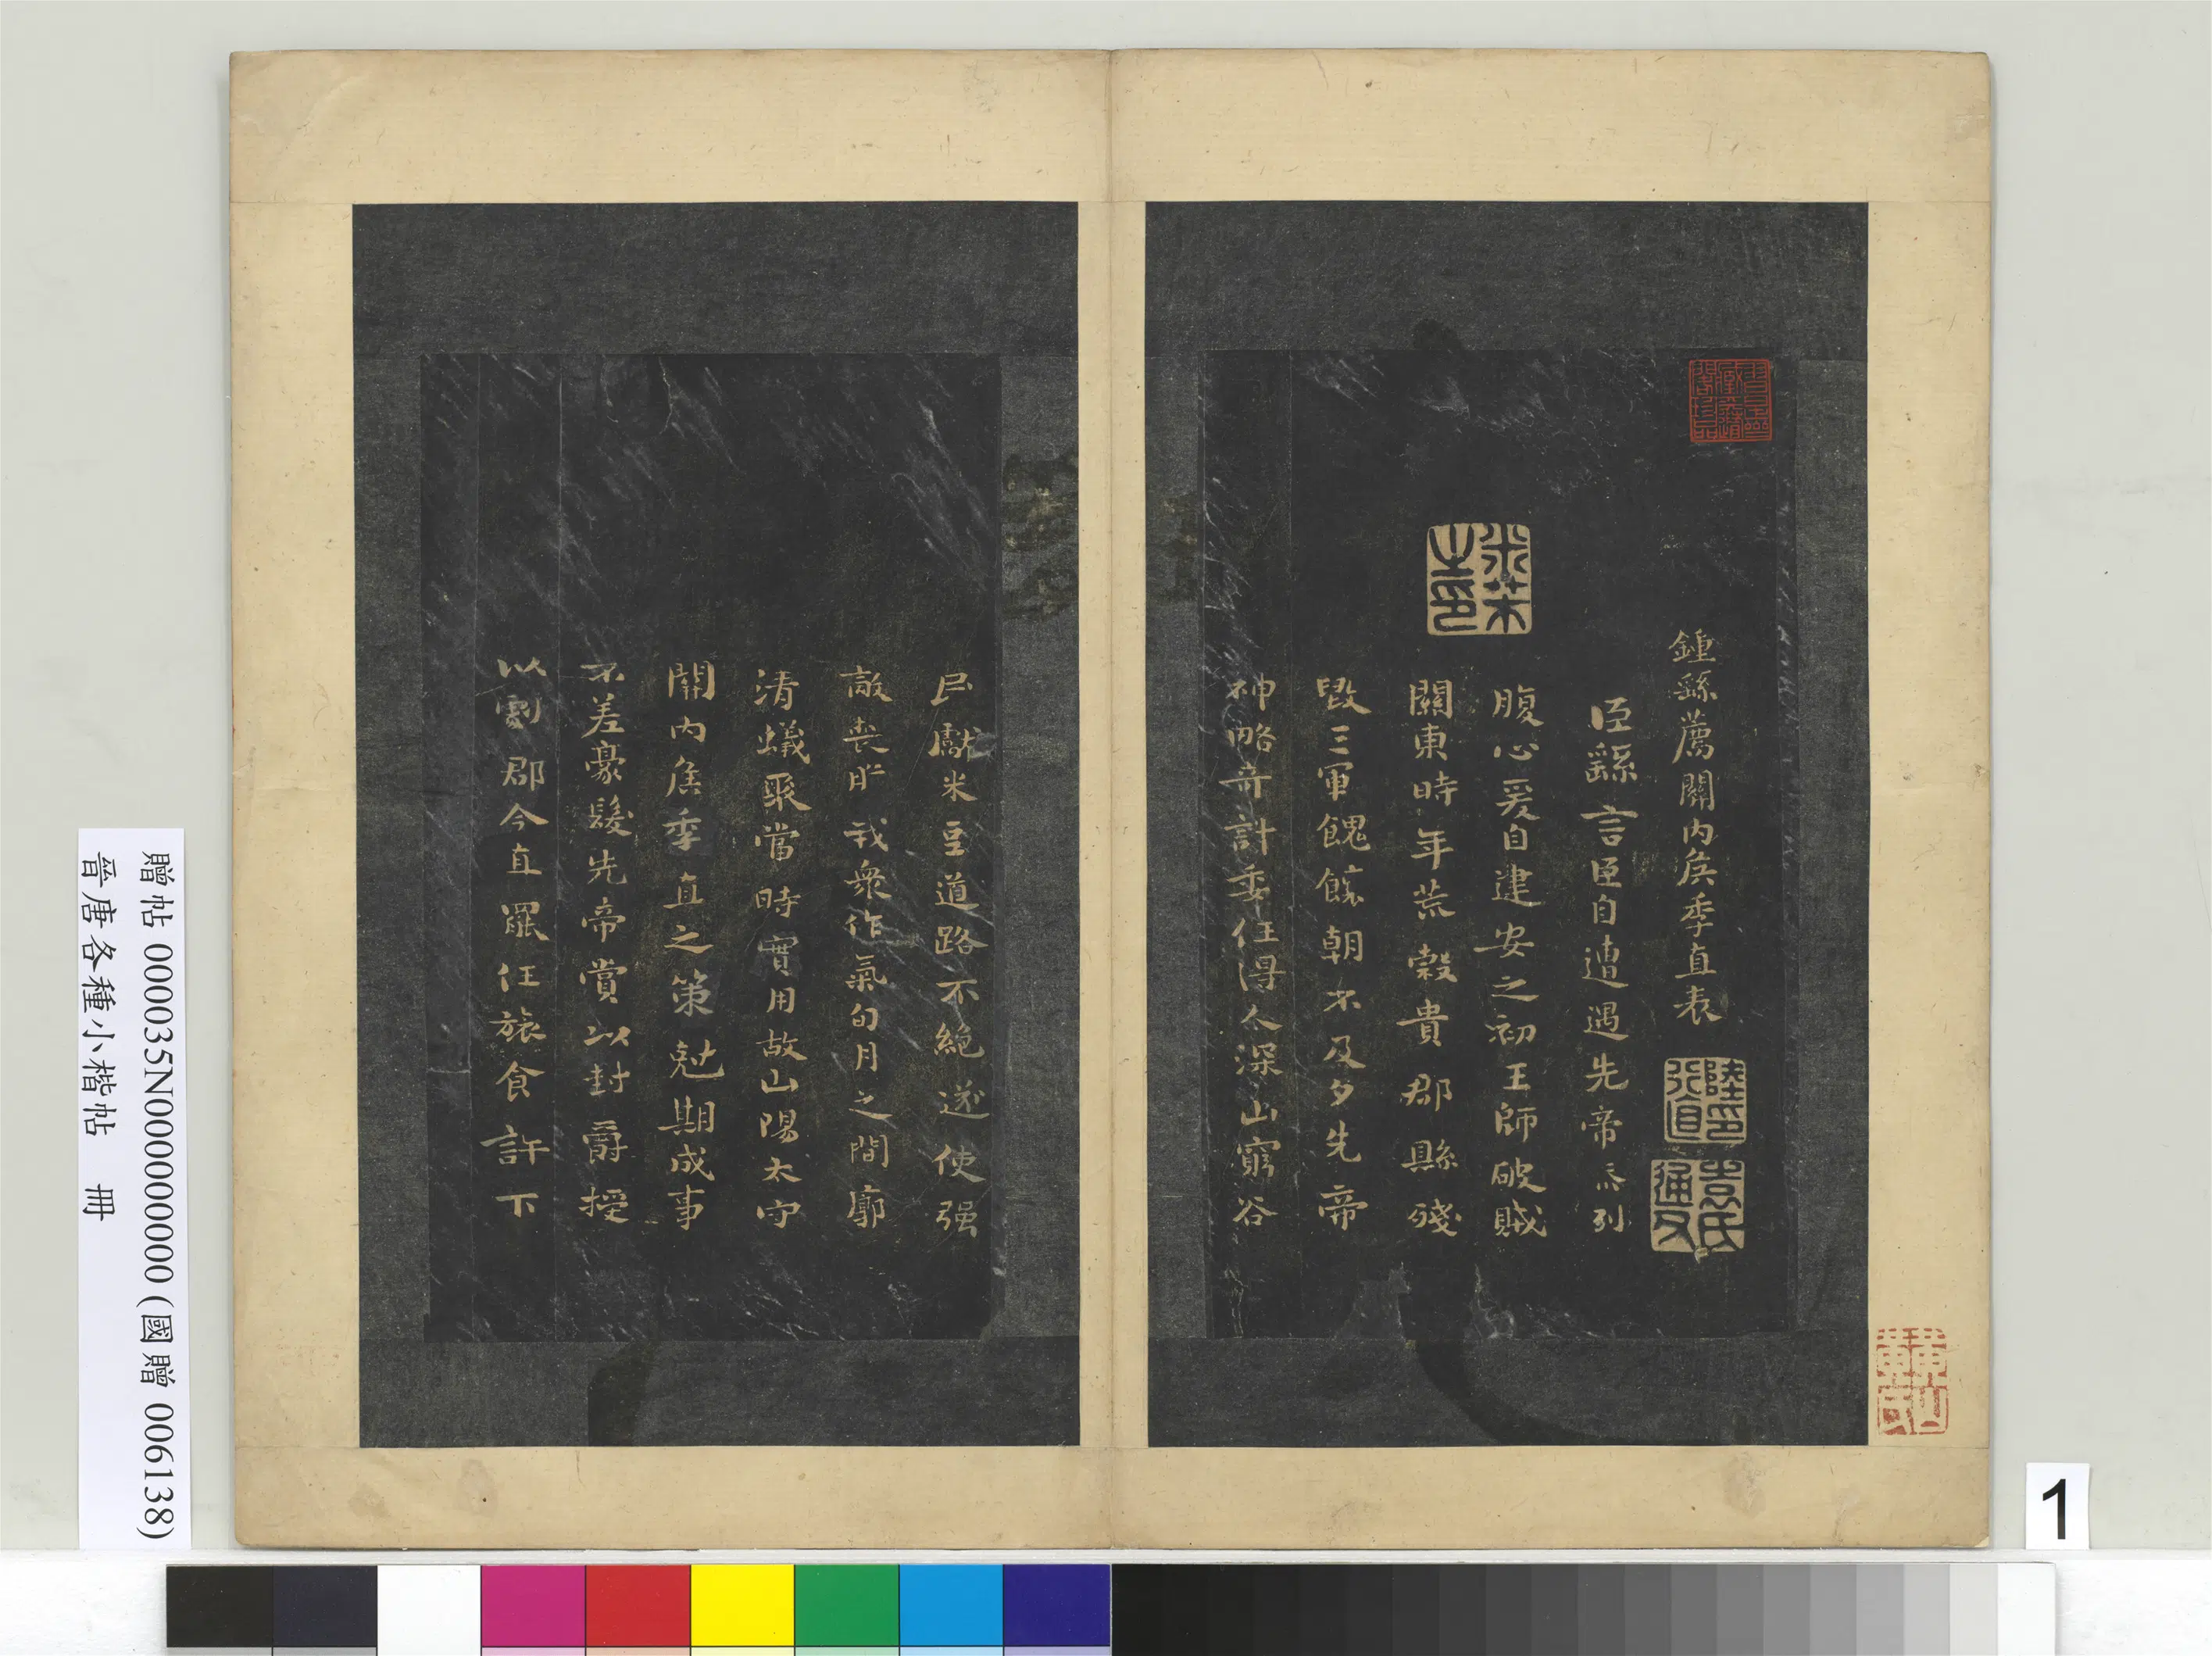 鍾繇薦關內侯季直表
臣繇言臣自遭遇先帝忝列
腹心爰自建安之初王師破賊
關東時年荒穀貴郡縣殘
毀三軍餽饟朝不及夕先帝
神略奇計委任得人深山窮谷
民獻米豆道路不絕遂使强
敵喪膽我衆作氣旬月之間廓
清蟻聚當時實用故山陽太守
關內侯季直之策剋期成事
不差豪髮先帝賞以封爵授
以劇郡今直罷任旅食許下
米芾之印
陸行直印
袁氏通父
黃氏
贈帖 000035N000000000 (國贈 006138)
晉唐各種小楷帖 冊
1